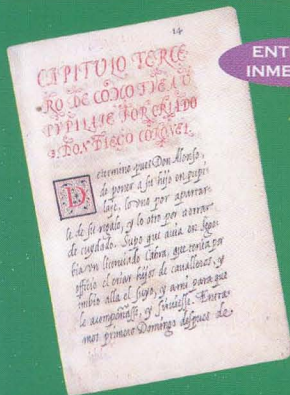 14
CAPITVLO TERCE
RO DE COMO FVE A
PVPILAJE POR CRIADO
D. DON DIEGO CORONEL
Determino pues Don Alonso,
de poner a su hijo en pupi
laje, lo vno por apartar-
le de su regalo, y lo otro por ahorrar
de cuydado. Supo que auia en Sego
bia vn licenciado Cabra, que tenia por
officio el criar hijos de caualleros, y
embio alla el suyo, y a mi para que
le acompañasse, y siruiesse. Entra
mos primero Domingo despues de
ENT
INME